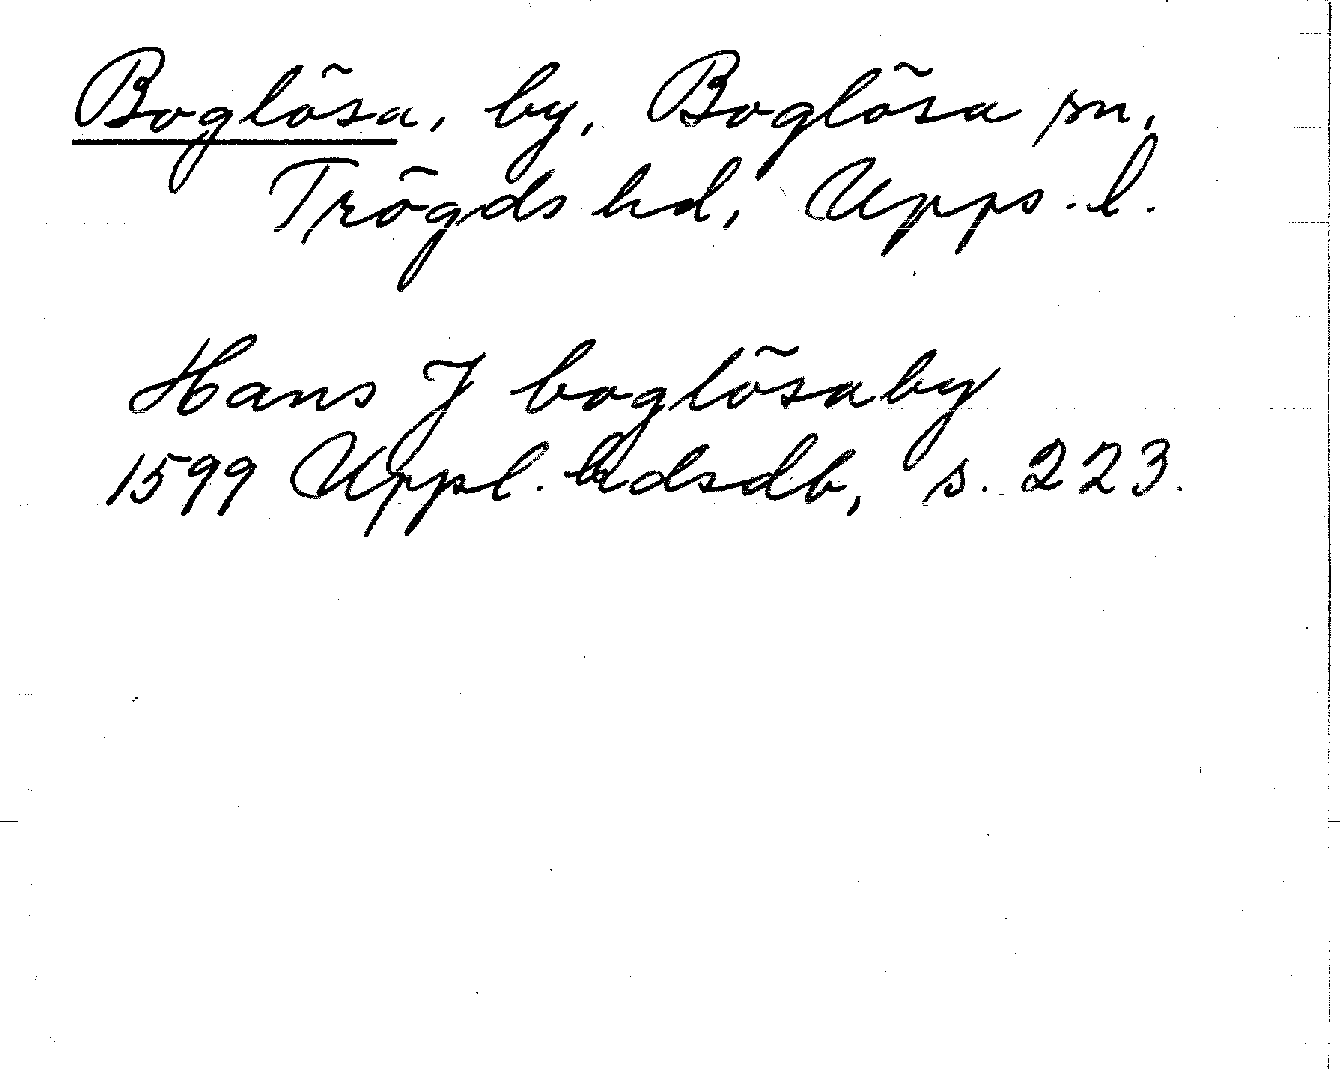 Boglösa, by, Boglösa sn,
Trögds hd, Upps. l.
Hans J boglösaby
1599 Uppl. hdsdb, s. 223.